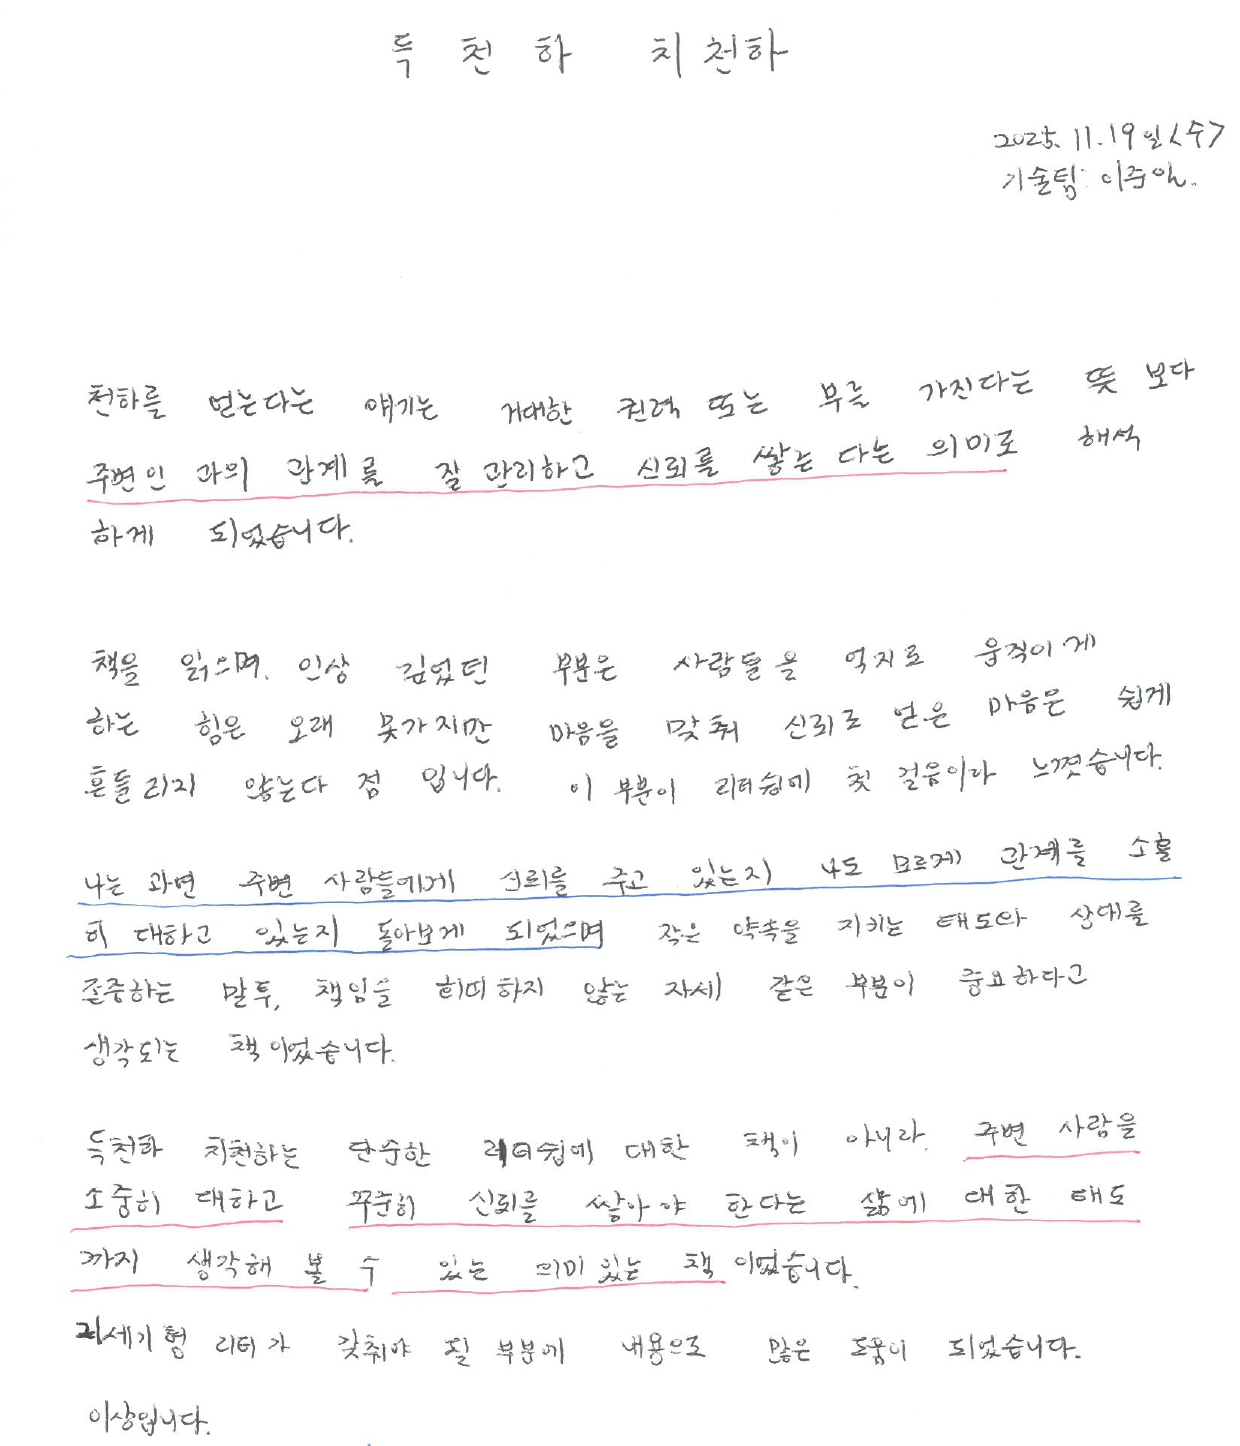 득 천 하 치천하
2025. 11. 19일 <수>
기술팀: 이주안.
천하를 얻는다는 얘기는 거대한 권력 또는 부를 가진다는 뜻 보다
주변인 과의 관계를 잘 관리하고 신뢰를 쌓는 다는 의미로 해석
하게 되었습니다.
책을 읽으며. 인상 깊었던 부분은 사람들을 억지로 움직이게
하는 힘은 오래 못가지만 마음을 맞춰 신뢰로 얻은 마음은 쉽게
흔들리지 않는다 점 입니다. 이 부분이 리더쉽에 첫 걸음이라 느꼈습니다.
나는 과연 주변 사람들에게 신뢰를 주고 있는지 나도 모르게 관계를 소홀
히 대하고 있는지 돌아보게 되었으며 작은 약속을 지키는 태도와 상대를
존중하는 말투, 책임을 회피하지 않는 자세 같은 부분이 중요하다고
생각되는 책이었습니다.
득천하 치천하는 단순한 리더쉽에 대한 책이 아니라. 주변 사람을
소중히 대하고 꾸준히 신뢰를 쌓아야 한다는 삶에 대한 태도
까지 생각해 볼 수 있는 의미있는 책 이었습니다.
리더가 갖춰야 될 부분에 내용으로 많은 도움이 되었습니다.
이상입니다.